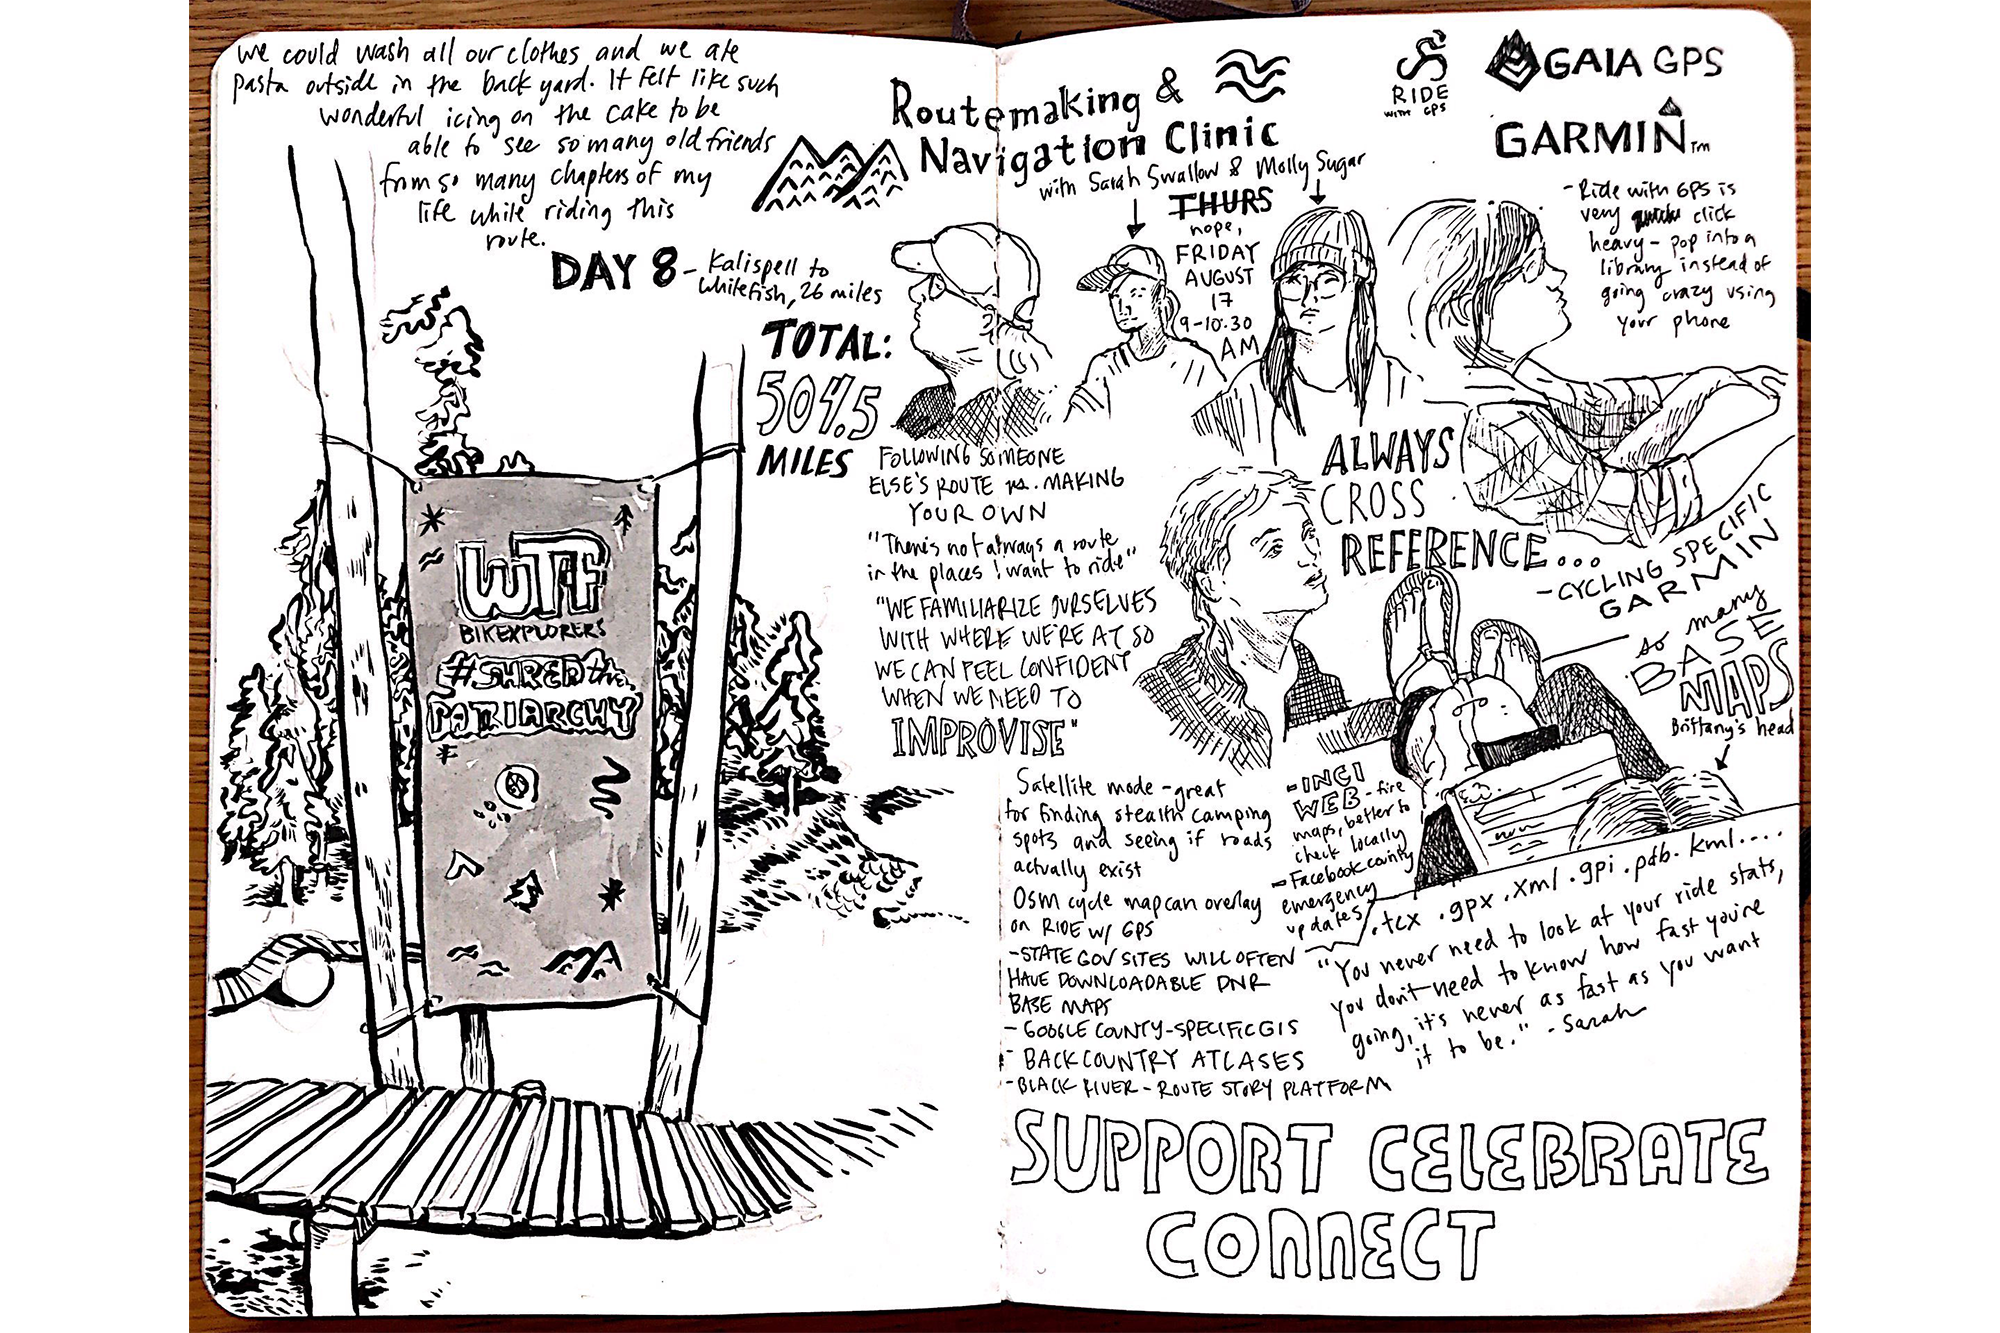 We could wash all our clothes and we ate
pasta outside in the back yard. It felt like such
wonderful icing on the cake to be
able to see so many old friends
from so many chapters of my
life while riding this
route.
DAY 8 - Kalispell to
Whitefish, 26 miles
TOTAL:
504.5
MILES
WTF
BIKEXPLORERS
#SHRED the
PATRIARCHY
Routemaking &
Navigation Clinic
with Sarah Swallow & Molly Sugar
THURS
nope,
FRIDAY
AUGUST
17
9-10:30
AM
RIDE
WITH GPS
GAIA GPS
GARMIN TM
- Ride with GPS is
very click
heavy - pop into a
library instead of
going crazy using
your phone
FOLLOWING SOMEONE
ELSE'S ROUTE vs. MAKING
YOUR OWN
"There's not always a route
in the places I want to ride"
"WE FAMILIARIZE OURSELVES
WITH WHERE WE'RE AT SO
WE CAN FEEL CONFIDENT
WHEN WE NEED TO
IMPROVISE"
ALWAYS
CROSS
REFERENCE...
- CYCLING SPECIFIC
GARMIN
so many
BASE
MAPS
Brittany's head
Satellite mode - great
for finding stealth camping
spots and seeing if roads
actually exist
Osm cycle map can overlay
on RIDE W/ GPS
- STATE GOV SITES WILL OFTEN
HAVE DOWNLOADABLE DNR
BASE MAPS
- GOOGLE COUNTY-SPECIFIC GIS
- BACKCOUNTRY ATLASES
- BLACK RIVER - ROUTE STORY PLATFORM
- INCI
WEB - fire
maps, better to
check locally
- Facebook county
emergency
updates
.tcx .gpx .xml .gpi .pdb. kml....
"You never need to look at your ride stats,
you don't need to know how fast you're
going, it's never as fast as you want
it to be." - Sarah
SUPPORT CELEBRATE
CONNECT